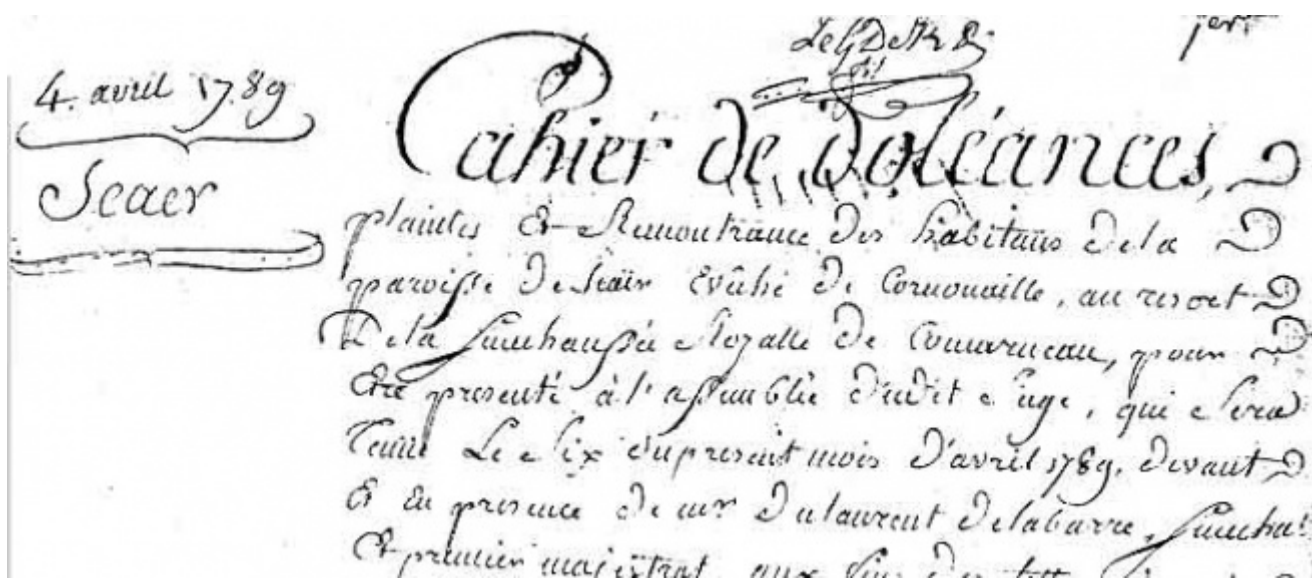 4. avril 1789
Scaer
Cahier de doléances,
plaintes Et Remontrance des habitans de la
paroisse de Scaër Evêché de Cornouaille, au resort
De la Senechaussée Royalle de Concarneau, pour
Etre presenté à l'assemblée dudit Siege, qui Sera
Tenue Le Six du present mois d'avril 1789. devant
Et En presence de mr. Dulaurent Delabarre, Senechal
Et premier majistrat aux fins des lett